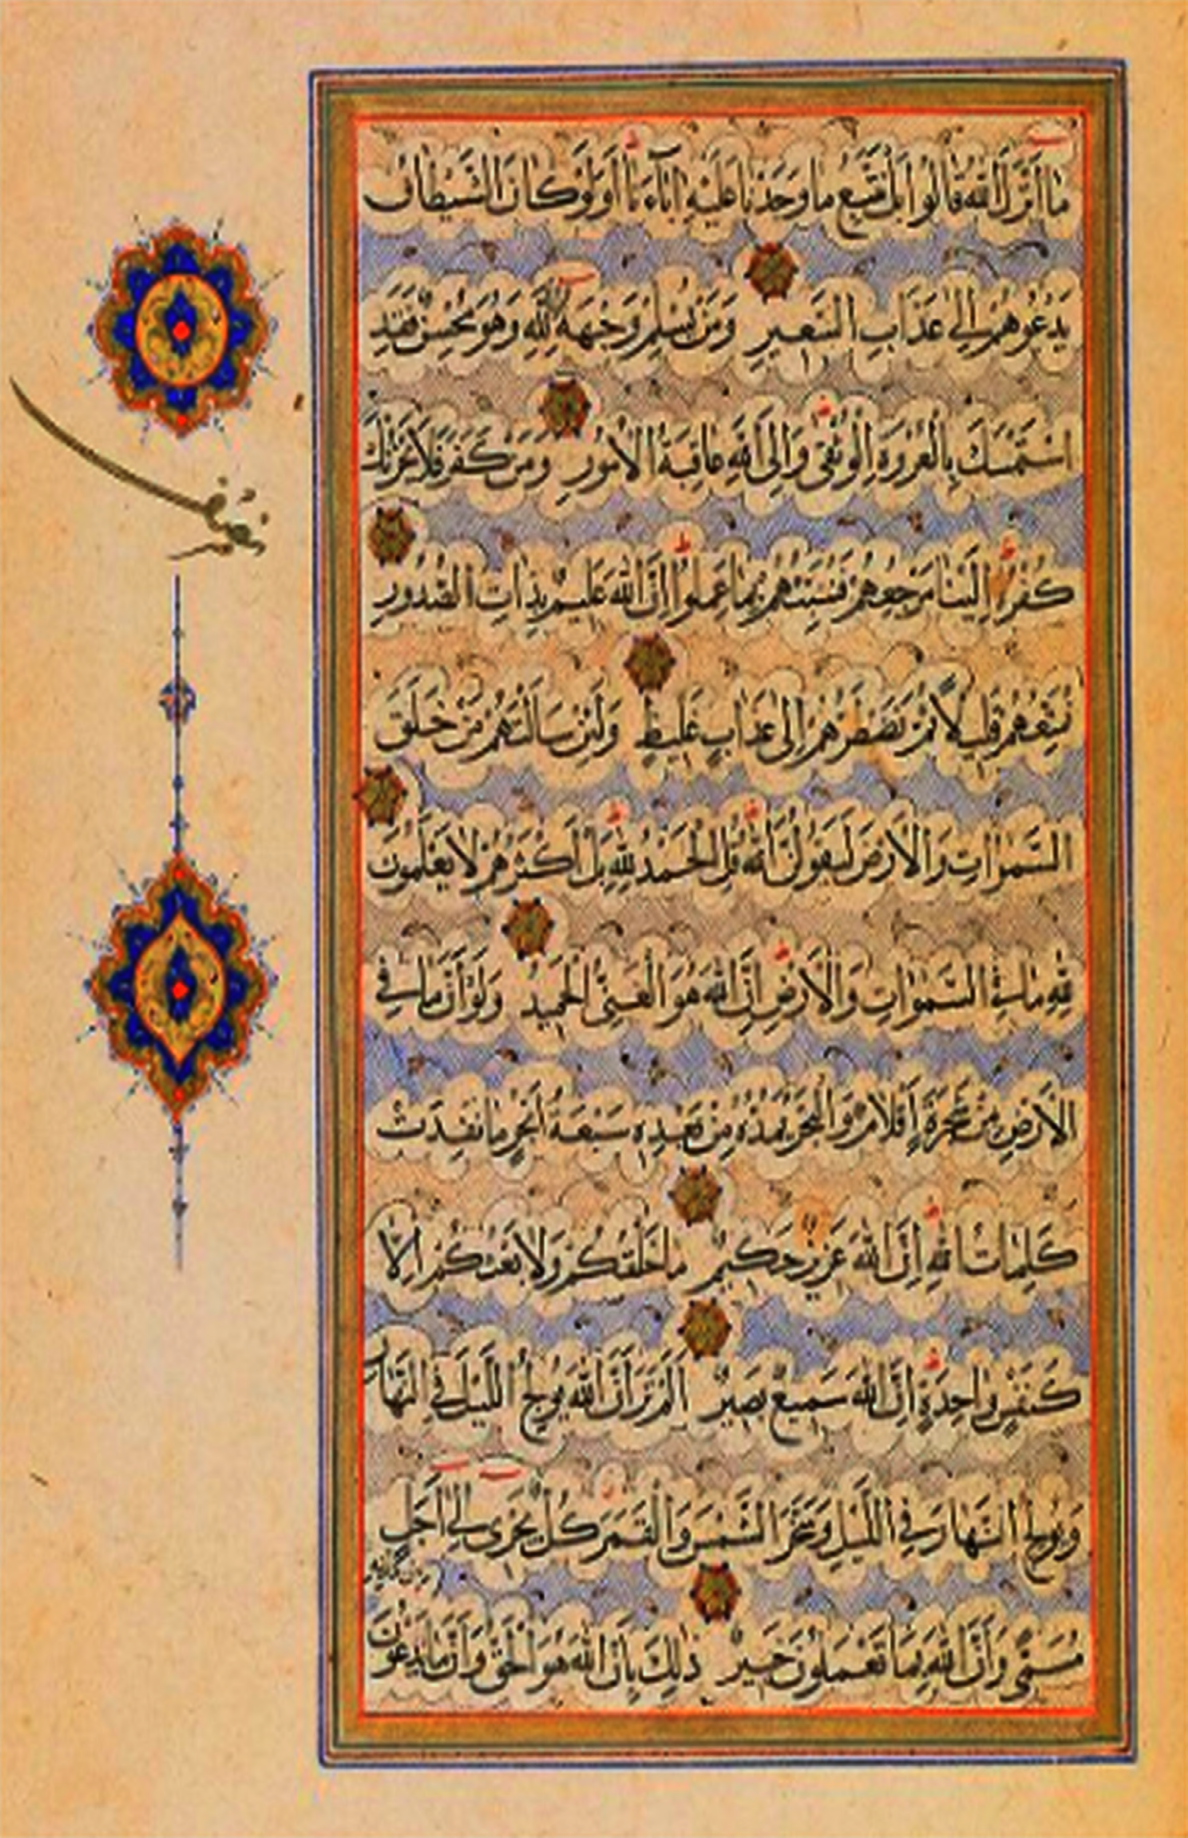 ما انزل الله قالوا بل نتبع ما وجدنا عليه اباءنا اولو كان الشيطان
يدعوهم الى عذاب السعير ومن يسلم وجهه الى الله وهو محسن فقد
استمسك بالعروة الوثقى والى الله عاقبة الامور ومن كفر فلا يحزنك
كفره الينا مرجعهم فننبئهم بما عملوا ان الله عليم بذات الصدور
نمتعهم قليلا ثم نضطرهم الى عذاب غليظ ولئن سالتهم من خلق
السموات والارض ليقولن الله قل الحمد لله بل اكثرهم لا يعلمون
لله ما في السموات والارض ان الله هو الغني الحميد ولو ان ما في
الارض من شجرة اقلام والبحر يمده من بعده سبعة ابحر ما نفدت
كلمات الله ان الله عزيز حكيم ما خلقكم ولا بعثكم الا
كنفس واحدة ان الله سميع بصير الم تر ان الله يولج الليل في النهار
ويولج النهار في الليل وسخر الشمس والقمر كل يجرى الى اجل
مسمى وان الله بما تعملون خبير ذلك بان الله هو الحق وان ما يدعون